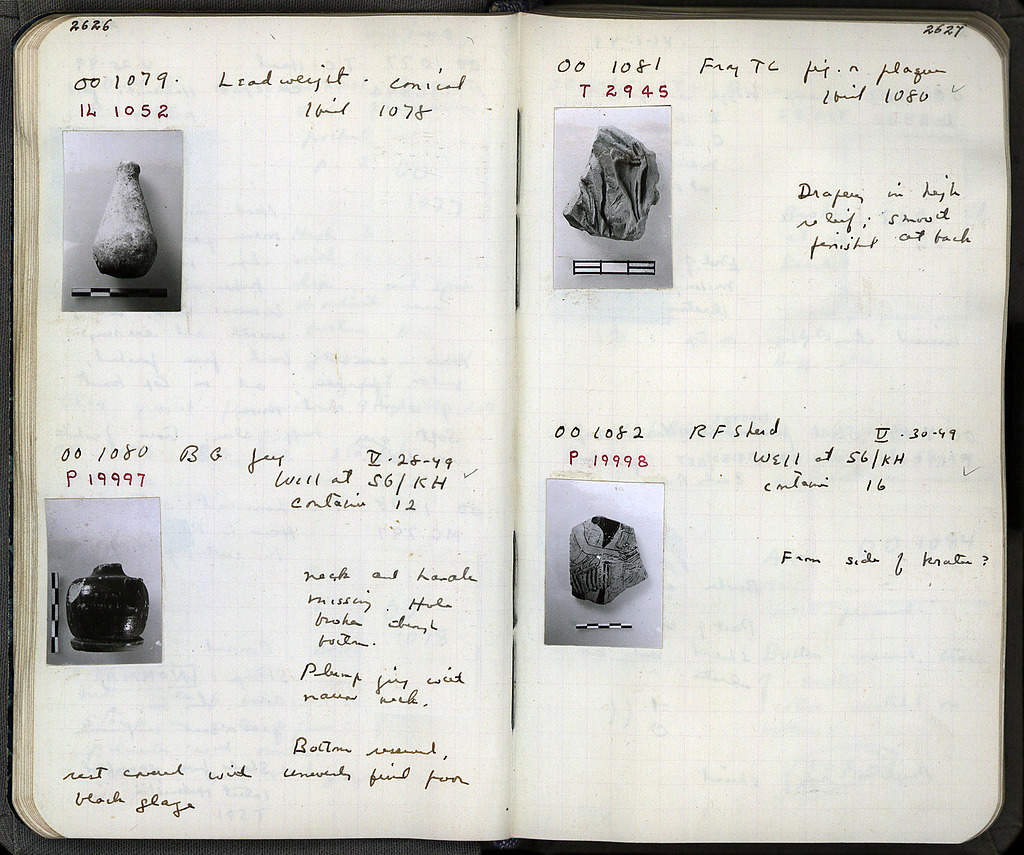 2626
OO 1079. Lead weight. conical
IL 1052
Ibid 1078
OO 1080 BG jug V.28-49
P 19997
Well at 56/KH ✓
container 12
neck and handle
missing. Hole
broken through
bottom.
Plump jug with
narrow neck.
Bottom reserved,
rest covered with unevenly fired poor
black glaze
2627
OO 1081 Frag TC fig. or plaque
T 2945
Ibid 1080 ✓
Drapery in high
relief; smooth
finished at back
OO 1082 RF Sherd V.30-49
P 19998
Well at 56/KH ✓
container 16
From side of krater?